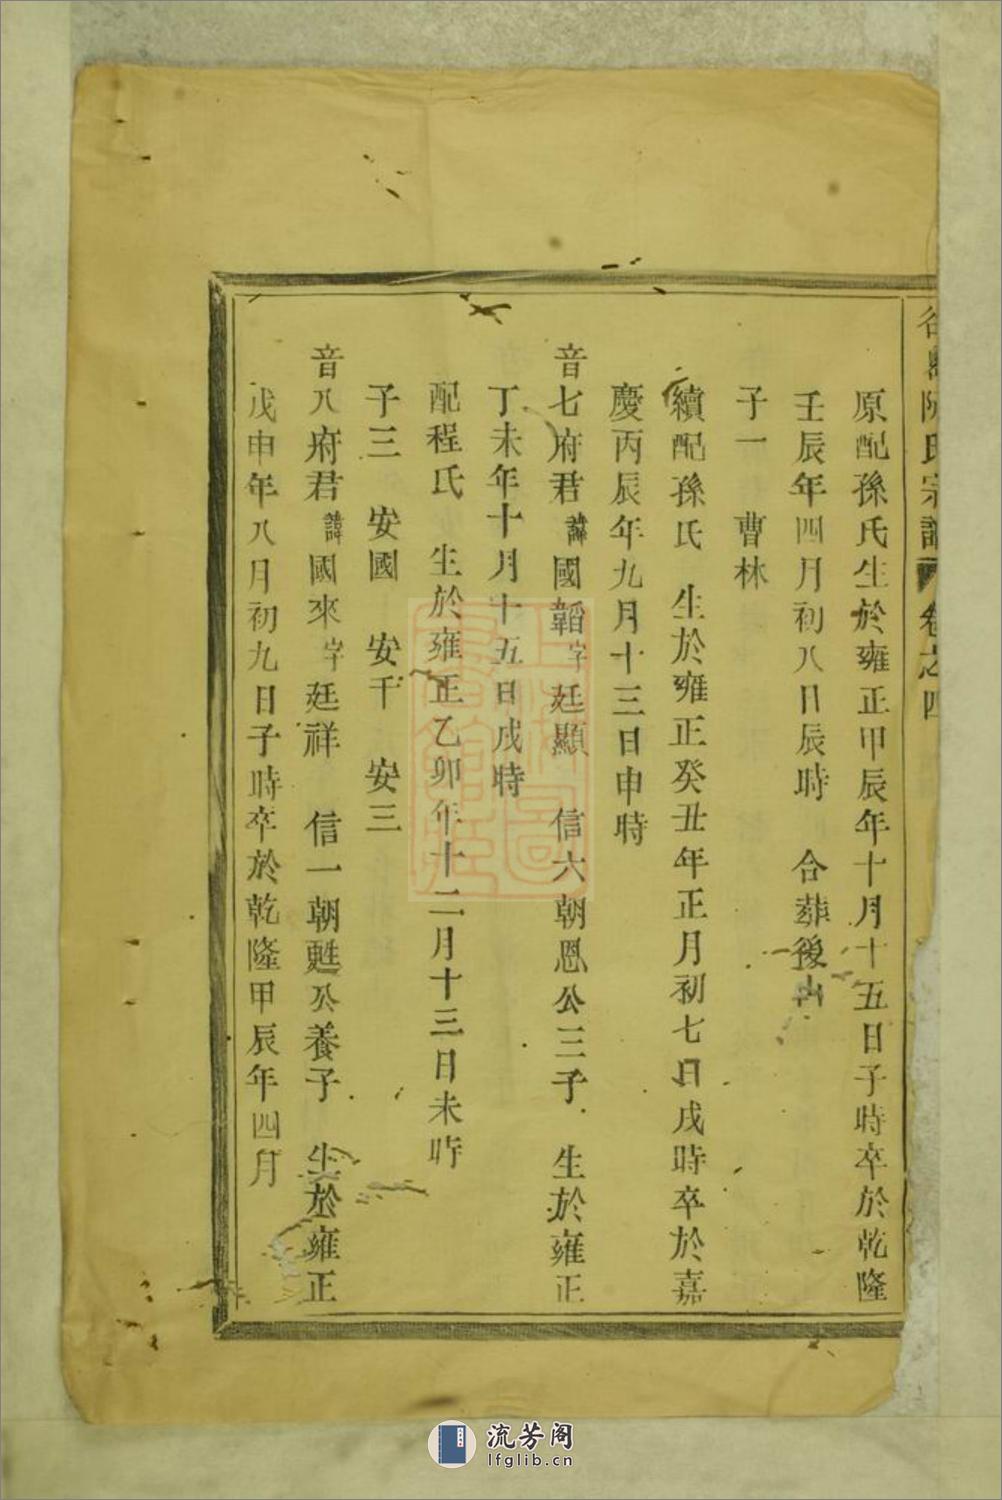 氏宗譜 卷之四
原配孫氏生於雍正甲辰年十月十五日子時卒於乾隆
壬辰年四月初八日辰時 合葬後山
子一 曹林
續配孫氏 生於雍正癸丑年正月初七日戌時卒於嘉
慶丙辰年九月十三日申時
音七府君諱國韜字廷顯 信六朝恩公三子 生於雍正
丁未年十月十五日戌時
配程氏 生於雍正乙卯年十二月十三日未時
子三 安國 安千 安三
音八府君諱國來字廷祥 信一朝甦公養子 生於雍正
戊申年八月初九日子時卒於乾隆甲辰年四月
流芳阁
lfglib.cn